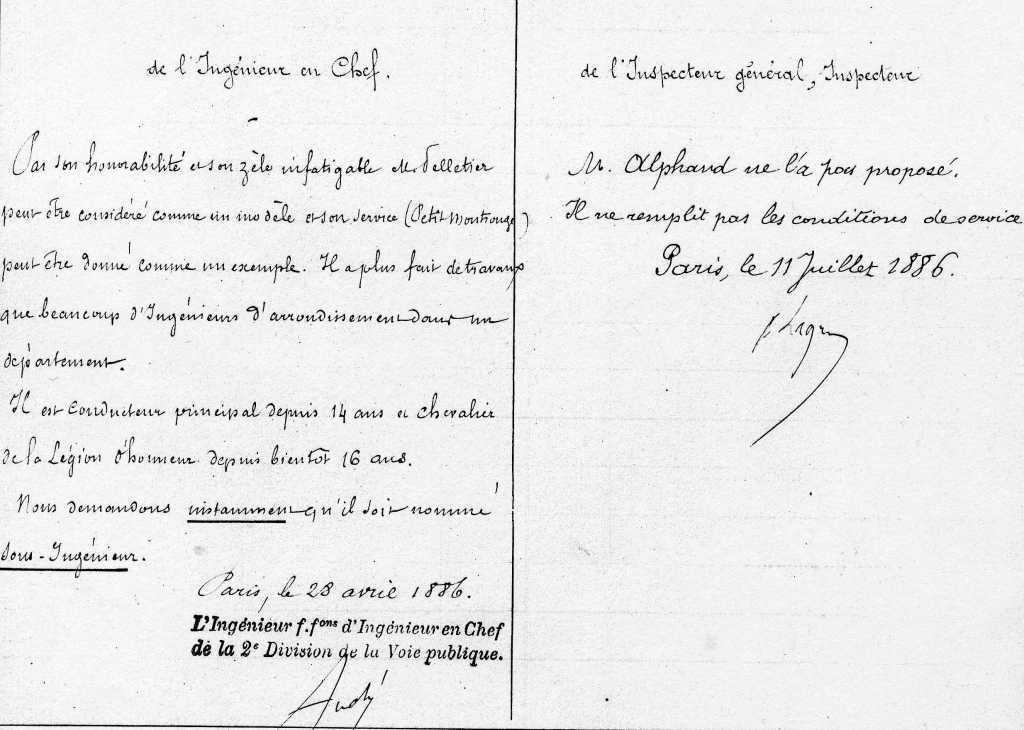 de l'Ingénieur en Chef.
Par son honorabilité et son zèle infatigable M. Pelletier
peut être considéré comme un modèle et son service (Petit Montrouge)
peut être donné comme un exemple. Il a plus fait de travaux
que beaucoup d'Ingénieurs d'arrondissement dans un
département.
Il est Conducteur principal depuis 14 ans et Chevalier
de la Légion d'honneur depuis bientôt 16 ans.
Nous demandons instamment qu'il soit nommé
Sous-Ingénieur.
Paris, le 28 avril 1886.
L'Ingénieur f.fons d'Ingénieur en Chef
de la 2e Division de la Voie publique.
de l'Inspecteur général, Inspecteur
M. Alphand ne l'a pas proposé.
Il ne remplit pas les conditions de service
Paris, le 11 Juillet 1886.